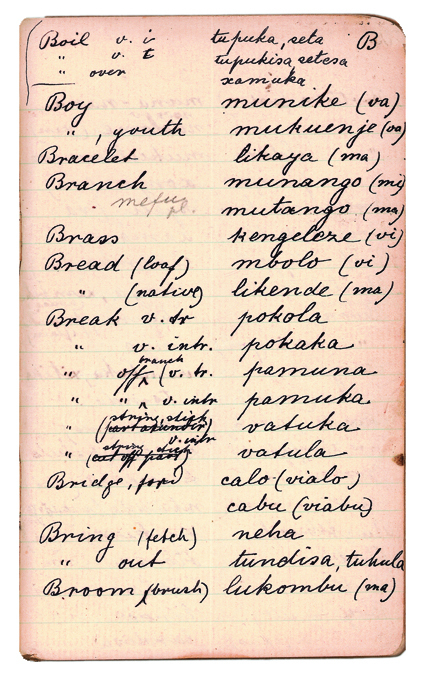 Boil v. i tupuka, seta B
" v. t tupukisa setesa
" over xamuka
Boy munike (va)
", youth mukuenje (va)
Bracelet likaya (ma)
Branch munango (mi)
mefu pl. mutango (ma)
Brass kengeleze (vi)
Bread (loaf) mbolo (vi)
" (native) likende (ma)
Break v. tr pokola
" v. intr. pokaka
" off branch (v. tr. pamuna
" " v. intr pamuka
" (string, stick vatuka
" string stick v. intr vatula
Bridge, calo (vialo)
cabu (viabu)
Bring (fetch) neha
" out tundisa, tuhula
Broom (brush) lukombu (ma)